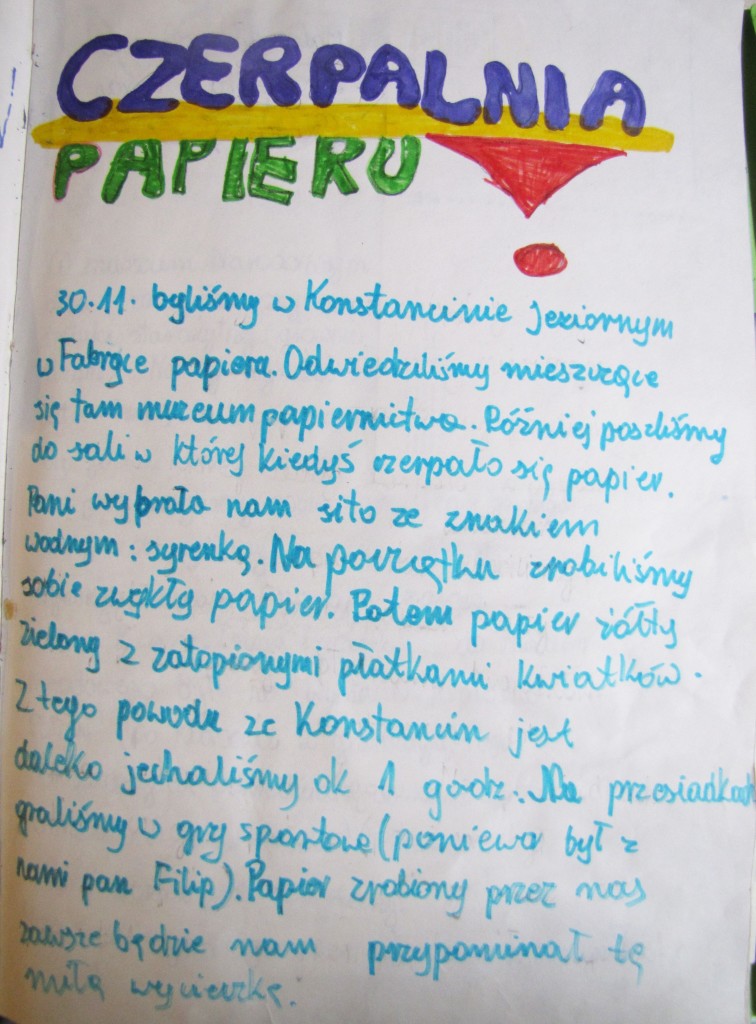 CZERPALNIA
PAPIERU
30.11. byliśmy w Konstancinie Jeziornym
w Fabryce papieru. Odwiedziliśmy mieszczące
się tam muzeum papiernictwa. Później poszliśmy
do sali w której kiedyś czerpało się papier.
Pani wybrała nam sito ze znakiem
wodnym : syrenką. Na początku zrobiliśmy
sobie zwykły papier. Potem papier żółty
zielony z zatopionymi płatkami kwiatków.
Z tego powodu ze Konstancin jest
daleko jechaliśmy ok 1 godz. Na przesiadkach
graliśmy w gry sportowe (poniewa był z
nami pan Filip). Papier zrobiony przez nas
zawsze będzie nam przypominał tę
miłą wycieczkę.